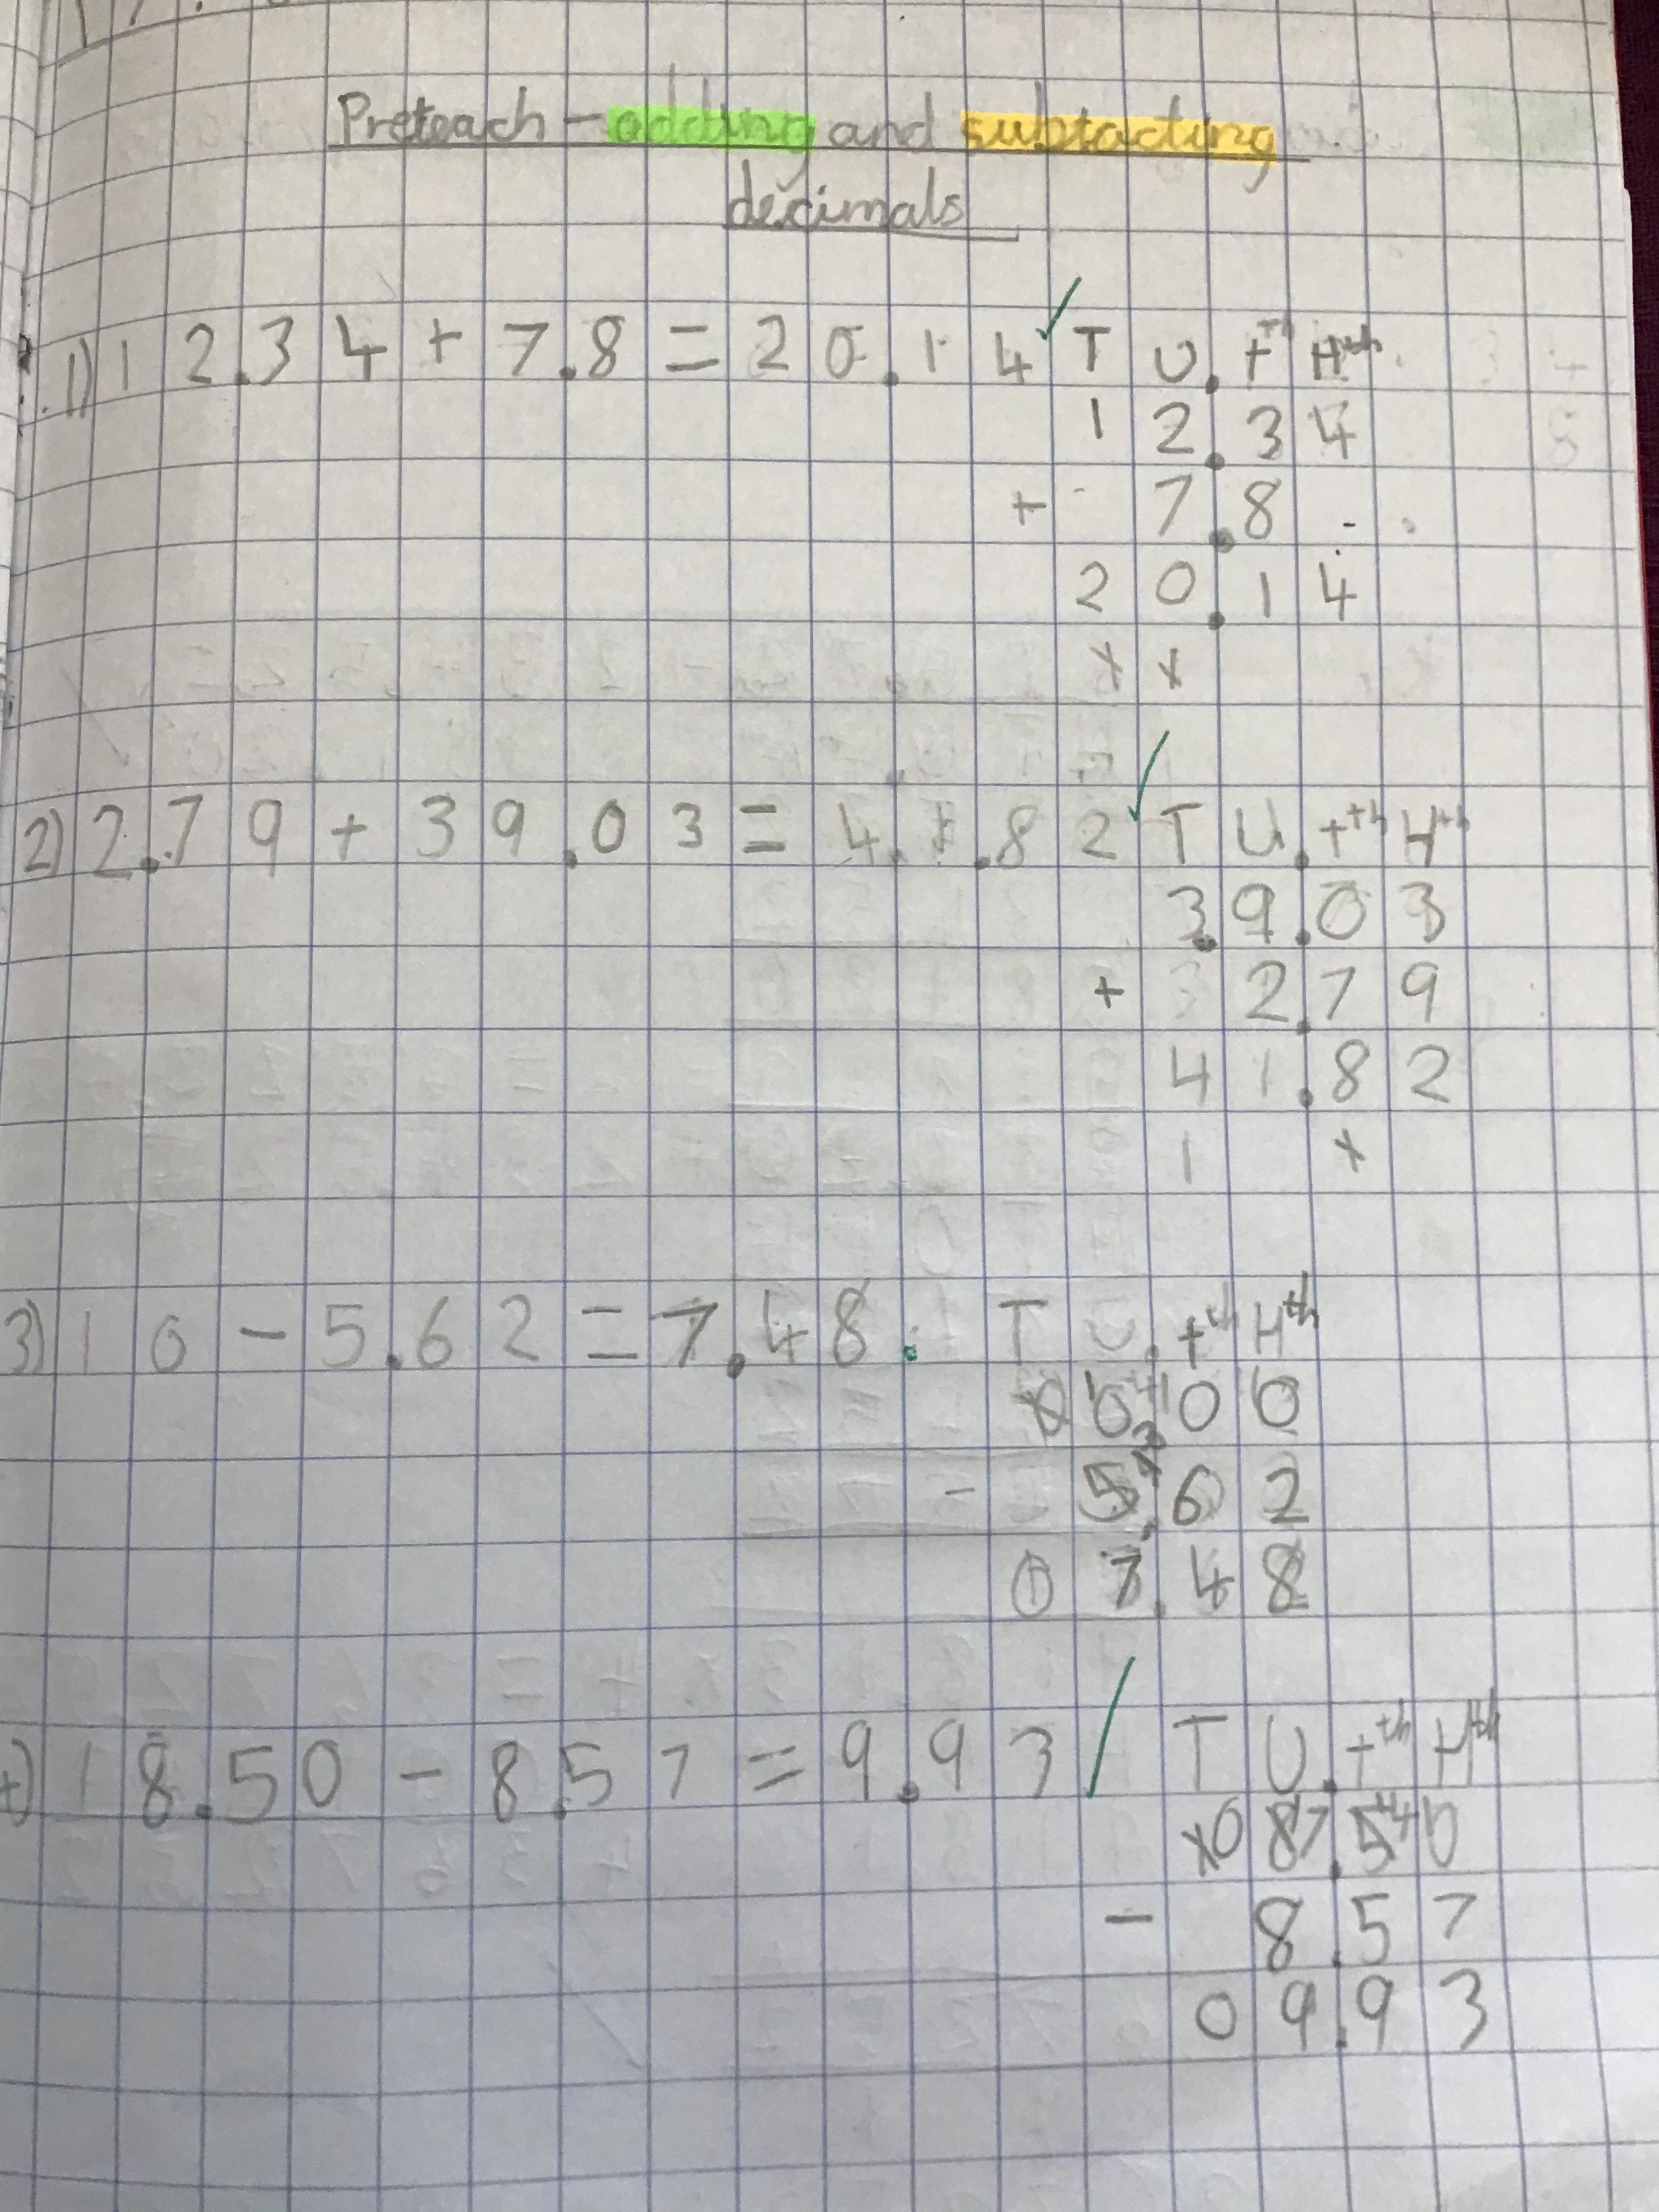 Preteach - adding and subtacting
decimals
1) 12.34 + 7.8 = 20.14 ✓ T U . tth Hth
1 2 . 3 4
+ 7 . 8
2 0 . 1 4
2) 2.79 + 39.03 = 41.82 ✓ T U . tth Hth
3 9 . 0 3
+ 2 . 7 9
4 1 . 8 2
1
3) 10 - 5.62 = 7.48 . T U . tth Hth
0 0 0
- 5 . 6 2
0 7 . 4 8
18.50 - 8.57 = 9.93 T U . tth Hth
- 8 . 5 7
0 9 . 9 3